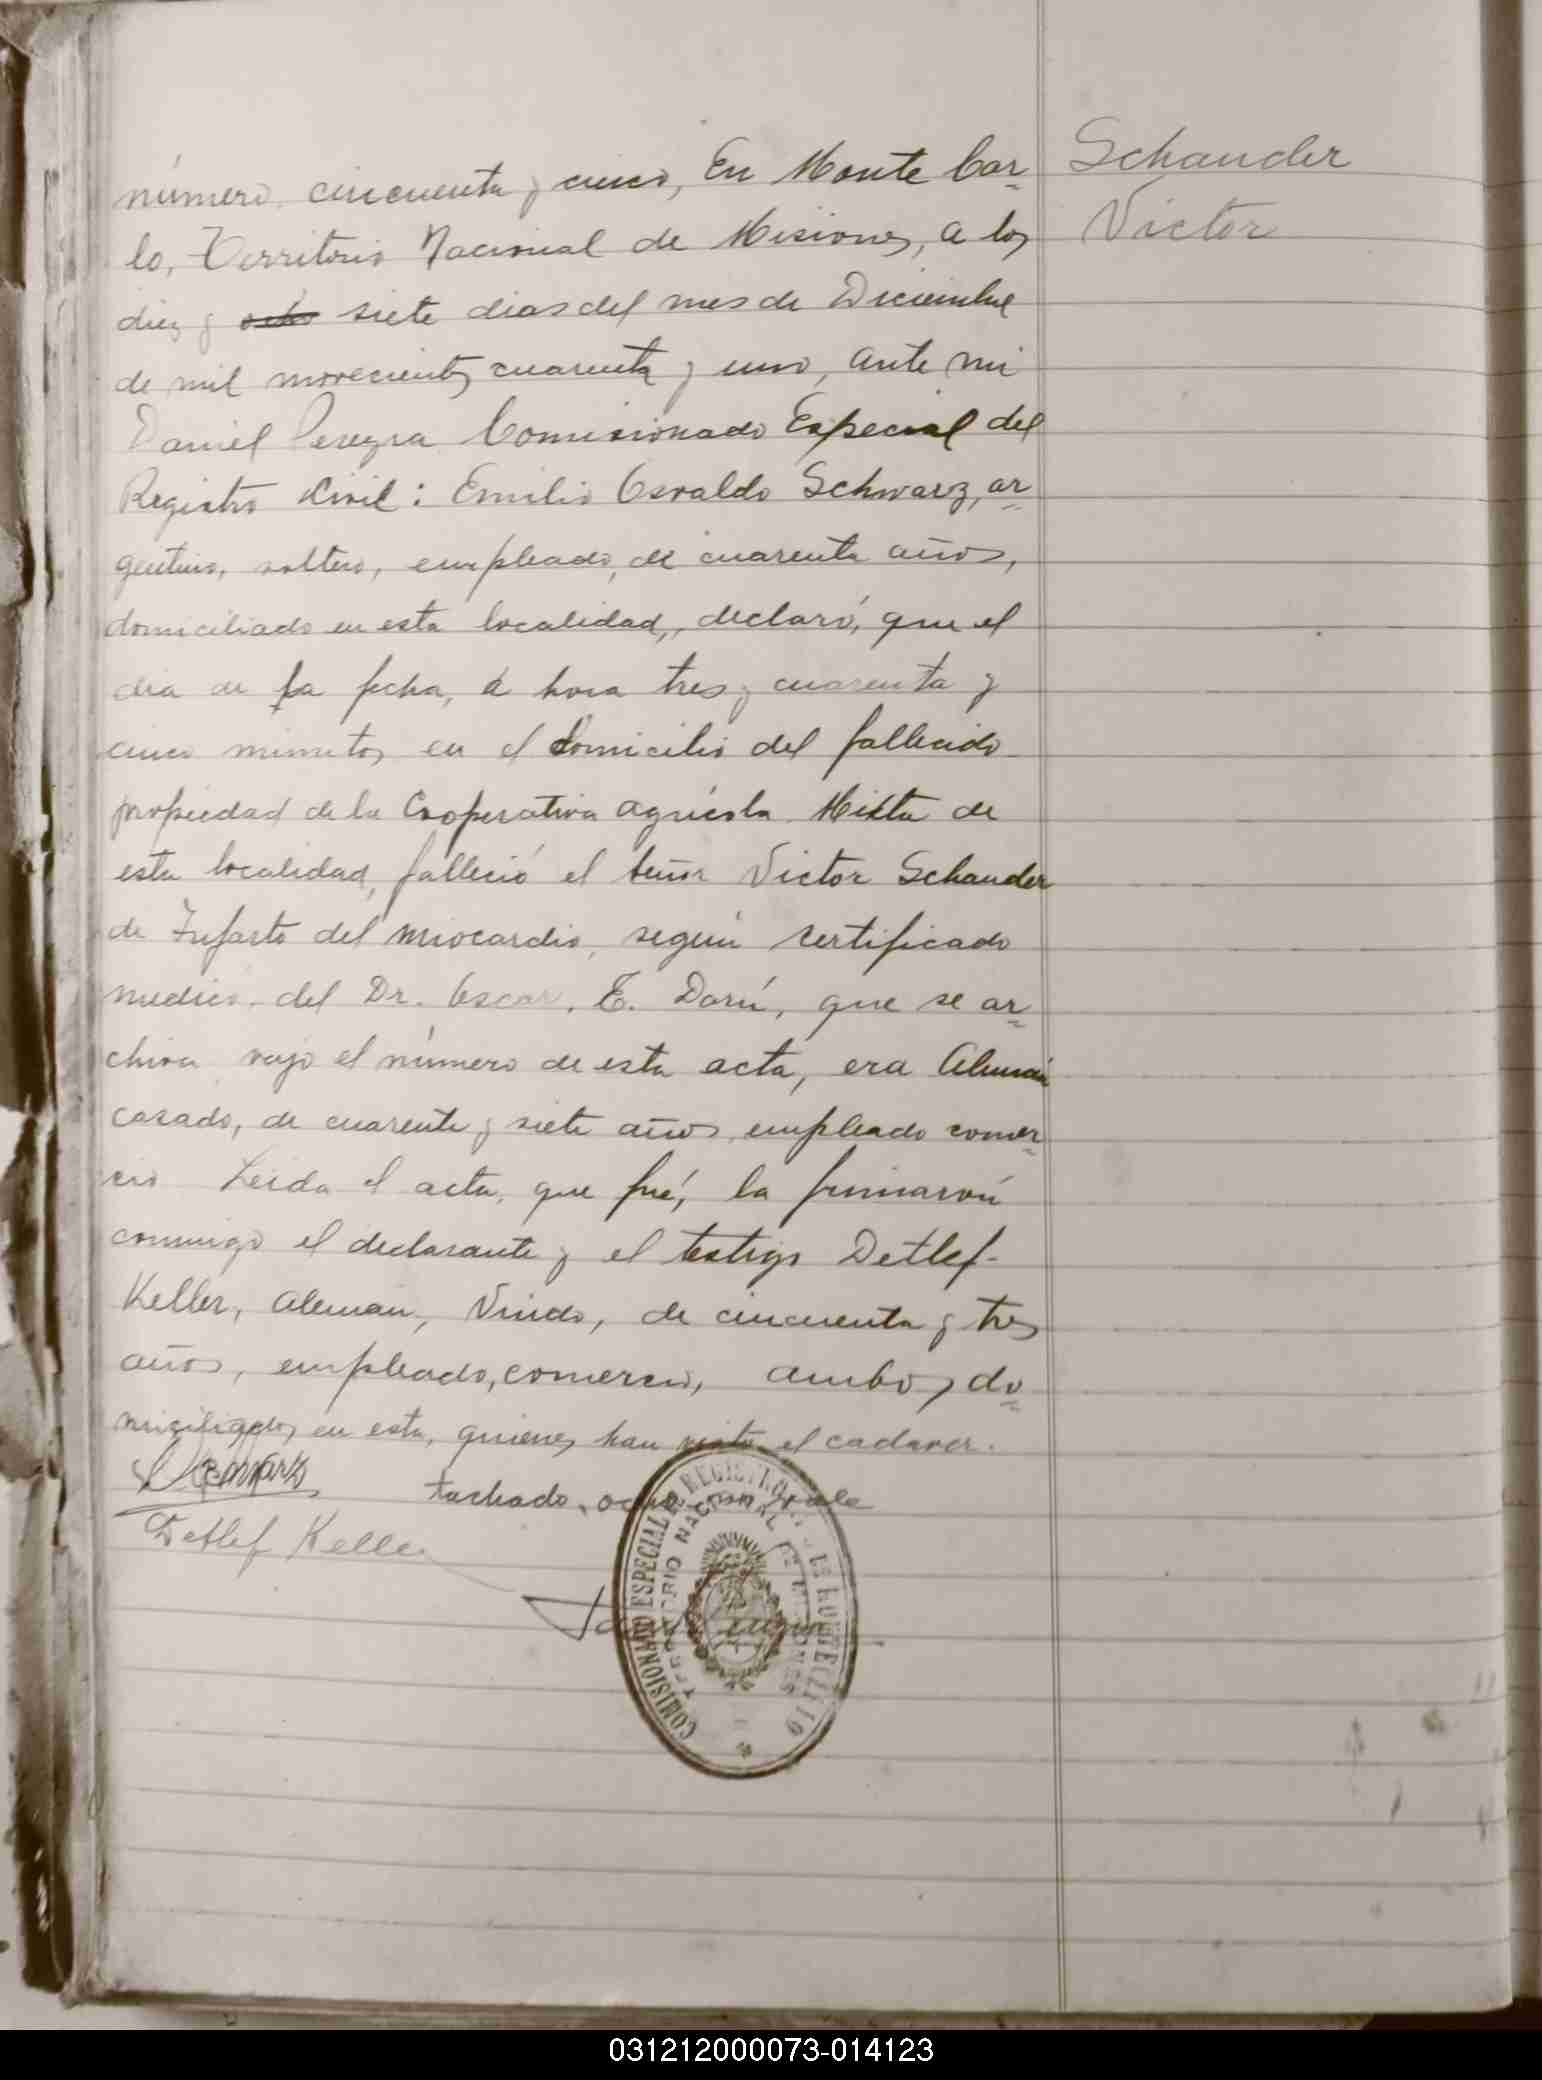 número cincuenta y cinco, En Monte Car-
lo, Territorio Nacional de Misiones, a los
diez y ocho siete dias del mes de Diciembre
de mil novecientos cuarenta y uno, ante mi
Daniel Pereyra Comisionado Especial del
Registro Civil: Emilio Osvaldo Schwarz, ar-
gentino, soltero, empleado, de cuarenta años,
domiciliado en esta localidad, declaró, que el
dia de la fecha, a hora tres y cuarenta y
cinco minutos en el domicilio del fallecido
propiedad de la Cooperativa agrícola Mixta de
esta localidad, falleció el señor Victor Schauder
de Infarto del miocardio, según certificado
medico del Dr. Oscar. E. Darú, que se ar-
chiva vajo el número de esta acta, era Alemán
casado, de cuarenta y siete años, empleado comer-
cio Leida el acta, que fué, la firmarón
conmigo el declarante y el testigo Detlef-
Keller, aleman, Viudo, de cincuenta y tres
años, empleado, comercio, ambos do-
miciliados en esta, quienes han visto el cadaver.
tachado, ocho vale
Detlef Keller
Schauder
Victor
COMISIONADO ESPECIAL DE REGISTRO
TERRITORIO NACIONAL DE MISIONES
031212000073-014123